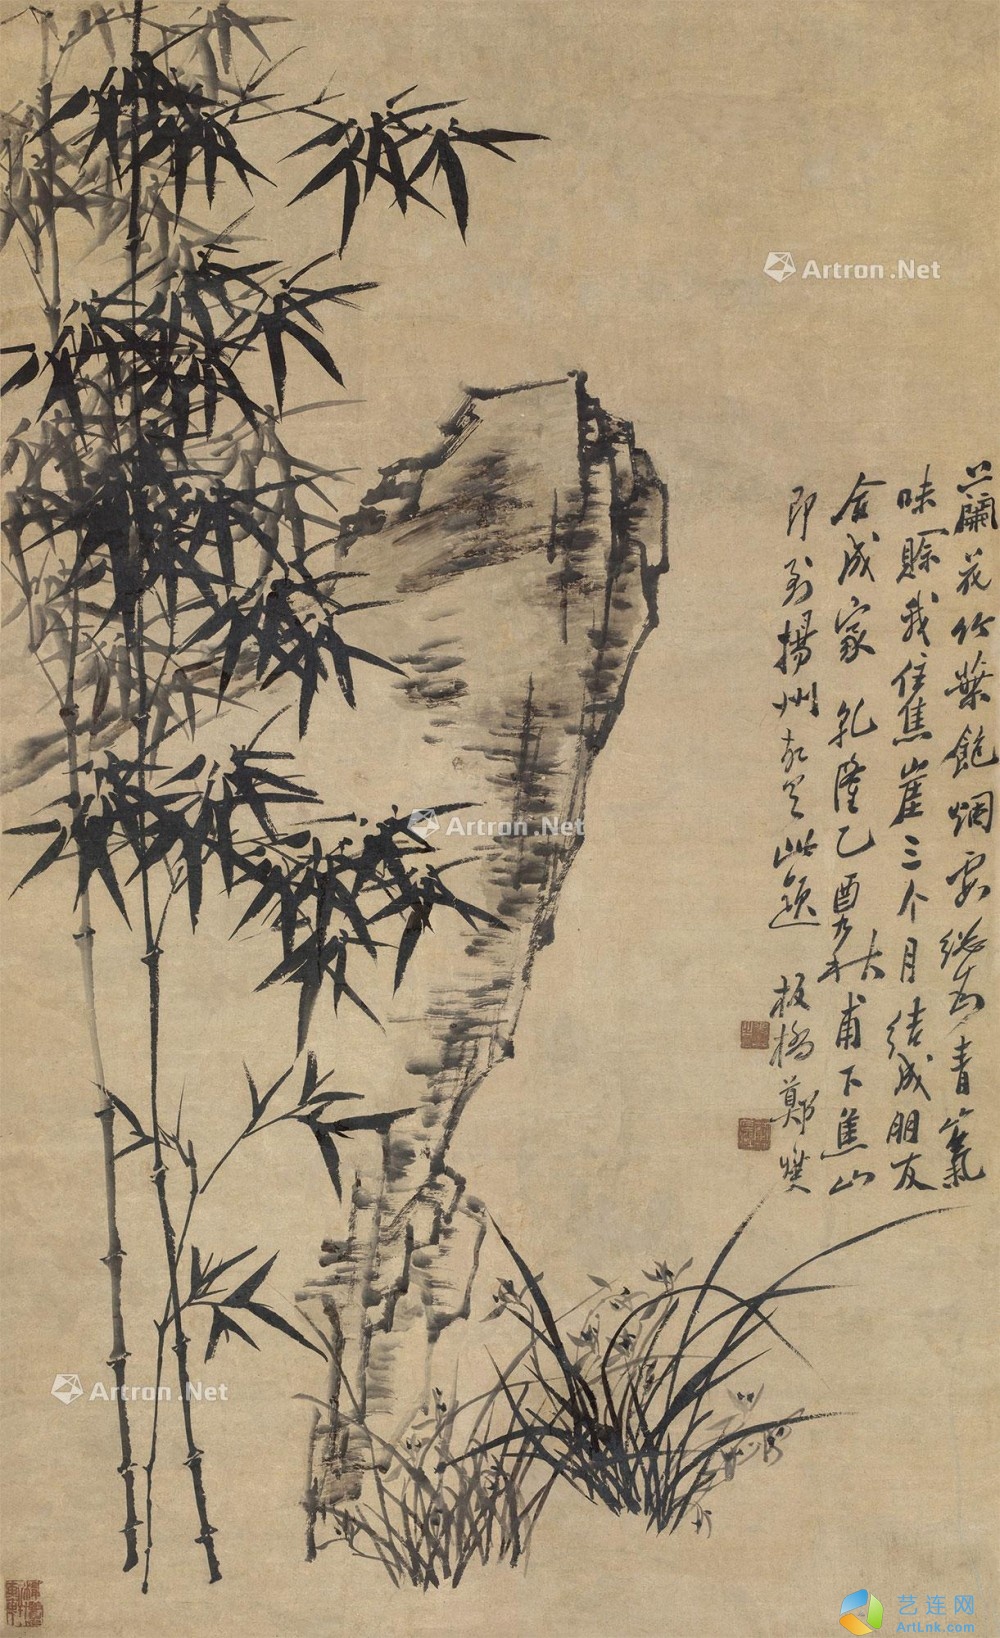 蘭花竹葉飽烟霞總為青山氣
味賒我住焦崖三个月結成朋友
合成家 乾隆乙酉秋甫下焦山
即到揚州此題 板橋鄭燮
Artron.Net
Artron.Net
Artron.Net
艺连网
ArtLnk.com